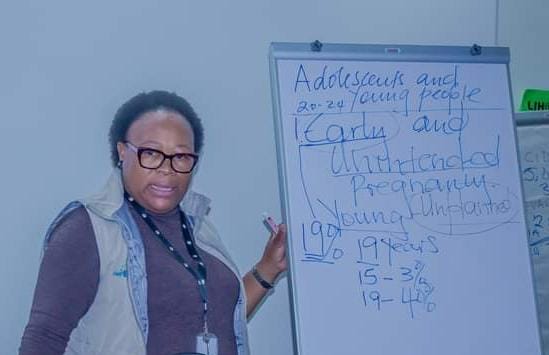 Adolescents and
20-24 Young people
1. Early and
Unintended
Pregnancy.
Young (Unplanned)
19% 19 Years
15 - 3%
19 - 4%